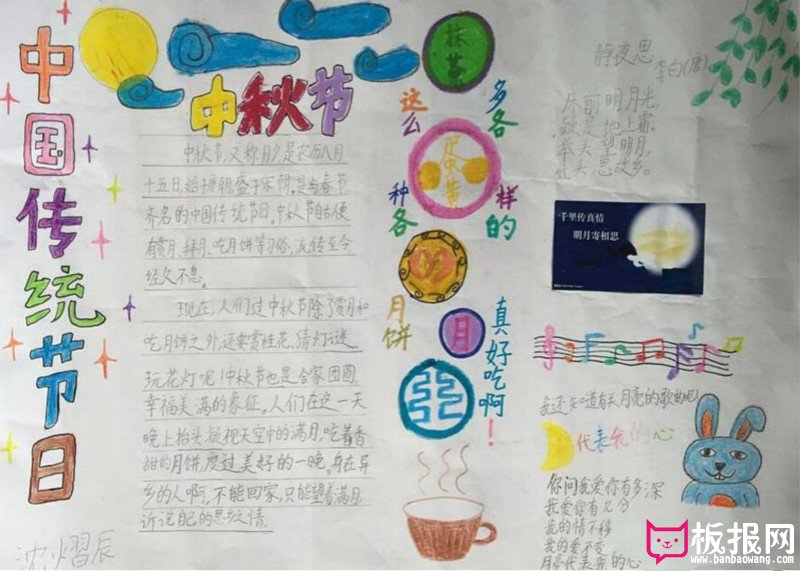 中国传统节日
中秋节
中秋节,又称月夕,是农历八月
十五日,始于唐朝,盛于宋朝,是与春节
齐名的中国传统节日。中秋节自古便
有赏月、拜月、吃月饼等习俗,流传至今
经久不息。
现在,人们过中秋节除了赏月和
吃月饼之外,还要赏桂花、猜灯谜、
玩花灯呢!中秋节也是合家团圆,
幸福美满的象征。人们在这一天
晚上抬头凝视天空中的满月,吃着香
甜的月饼,度过美好的一晚。身在异
乡的人啊,不能回家,只能望着满月
诉说自己的思念之情。
抹茶
这么
多各
蛋黄
种各
样的
月饼
月
真好吃啊!
静夜思
李白(唐)
床前明月光,
疑是地上霜。
举头望明月,
低头思故乡。
千里传真情
明月寄相思
我还知道有关月亮的歌曲呢
月亮代表我的心
你问我爱你有多深
我爱你有几分
我的情不移
我的爱不变
月亮代表我的心
板报网
www.banbaowang.com